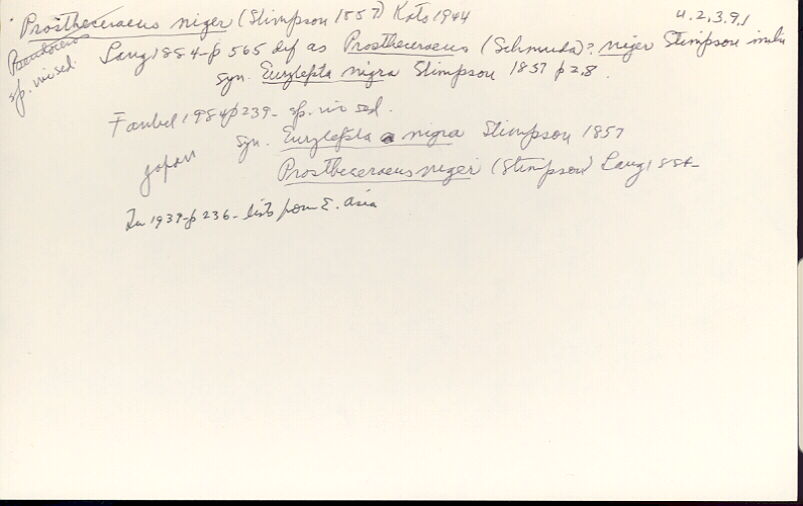 Prostheceraeus niger (Stimpson 1857) Kato 1944
4.2.3.9.1
Pseudoceros
sp. vis sed.
Lang 1884-p 565 def as Prostheceraeus (Schmarda)? niger Stimpson
syn. Eurylepta nigra Stimpson 1857 p 28.
Faubel 1984 p 239- sp. vis sed.
syn. Eurylepta nigra Stimpson 1857
Japan
Prostheceraeus niger (Stimpson) Lang 1884-
1939-p 236- lists from E. Asia